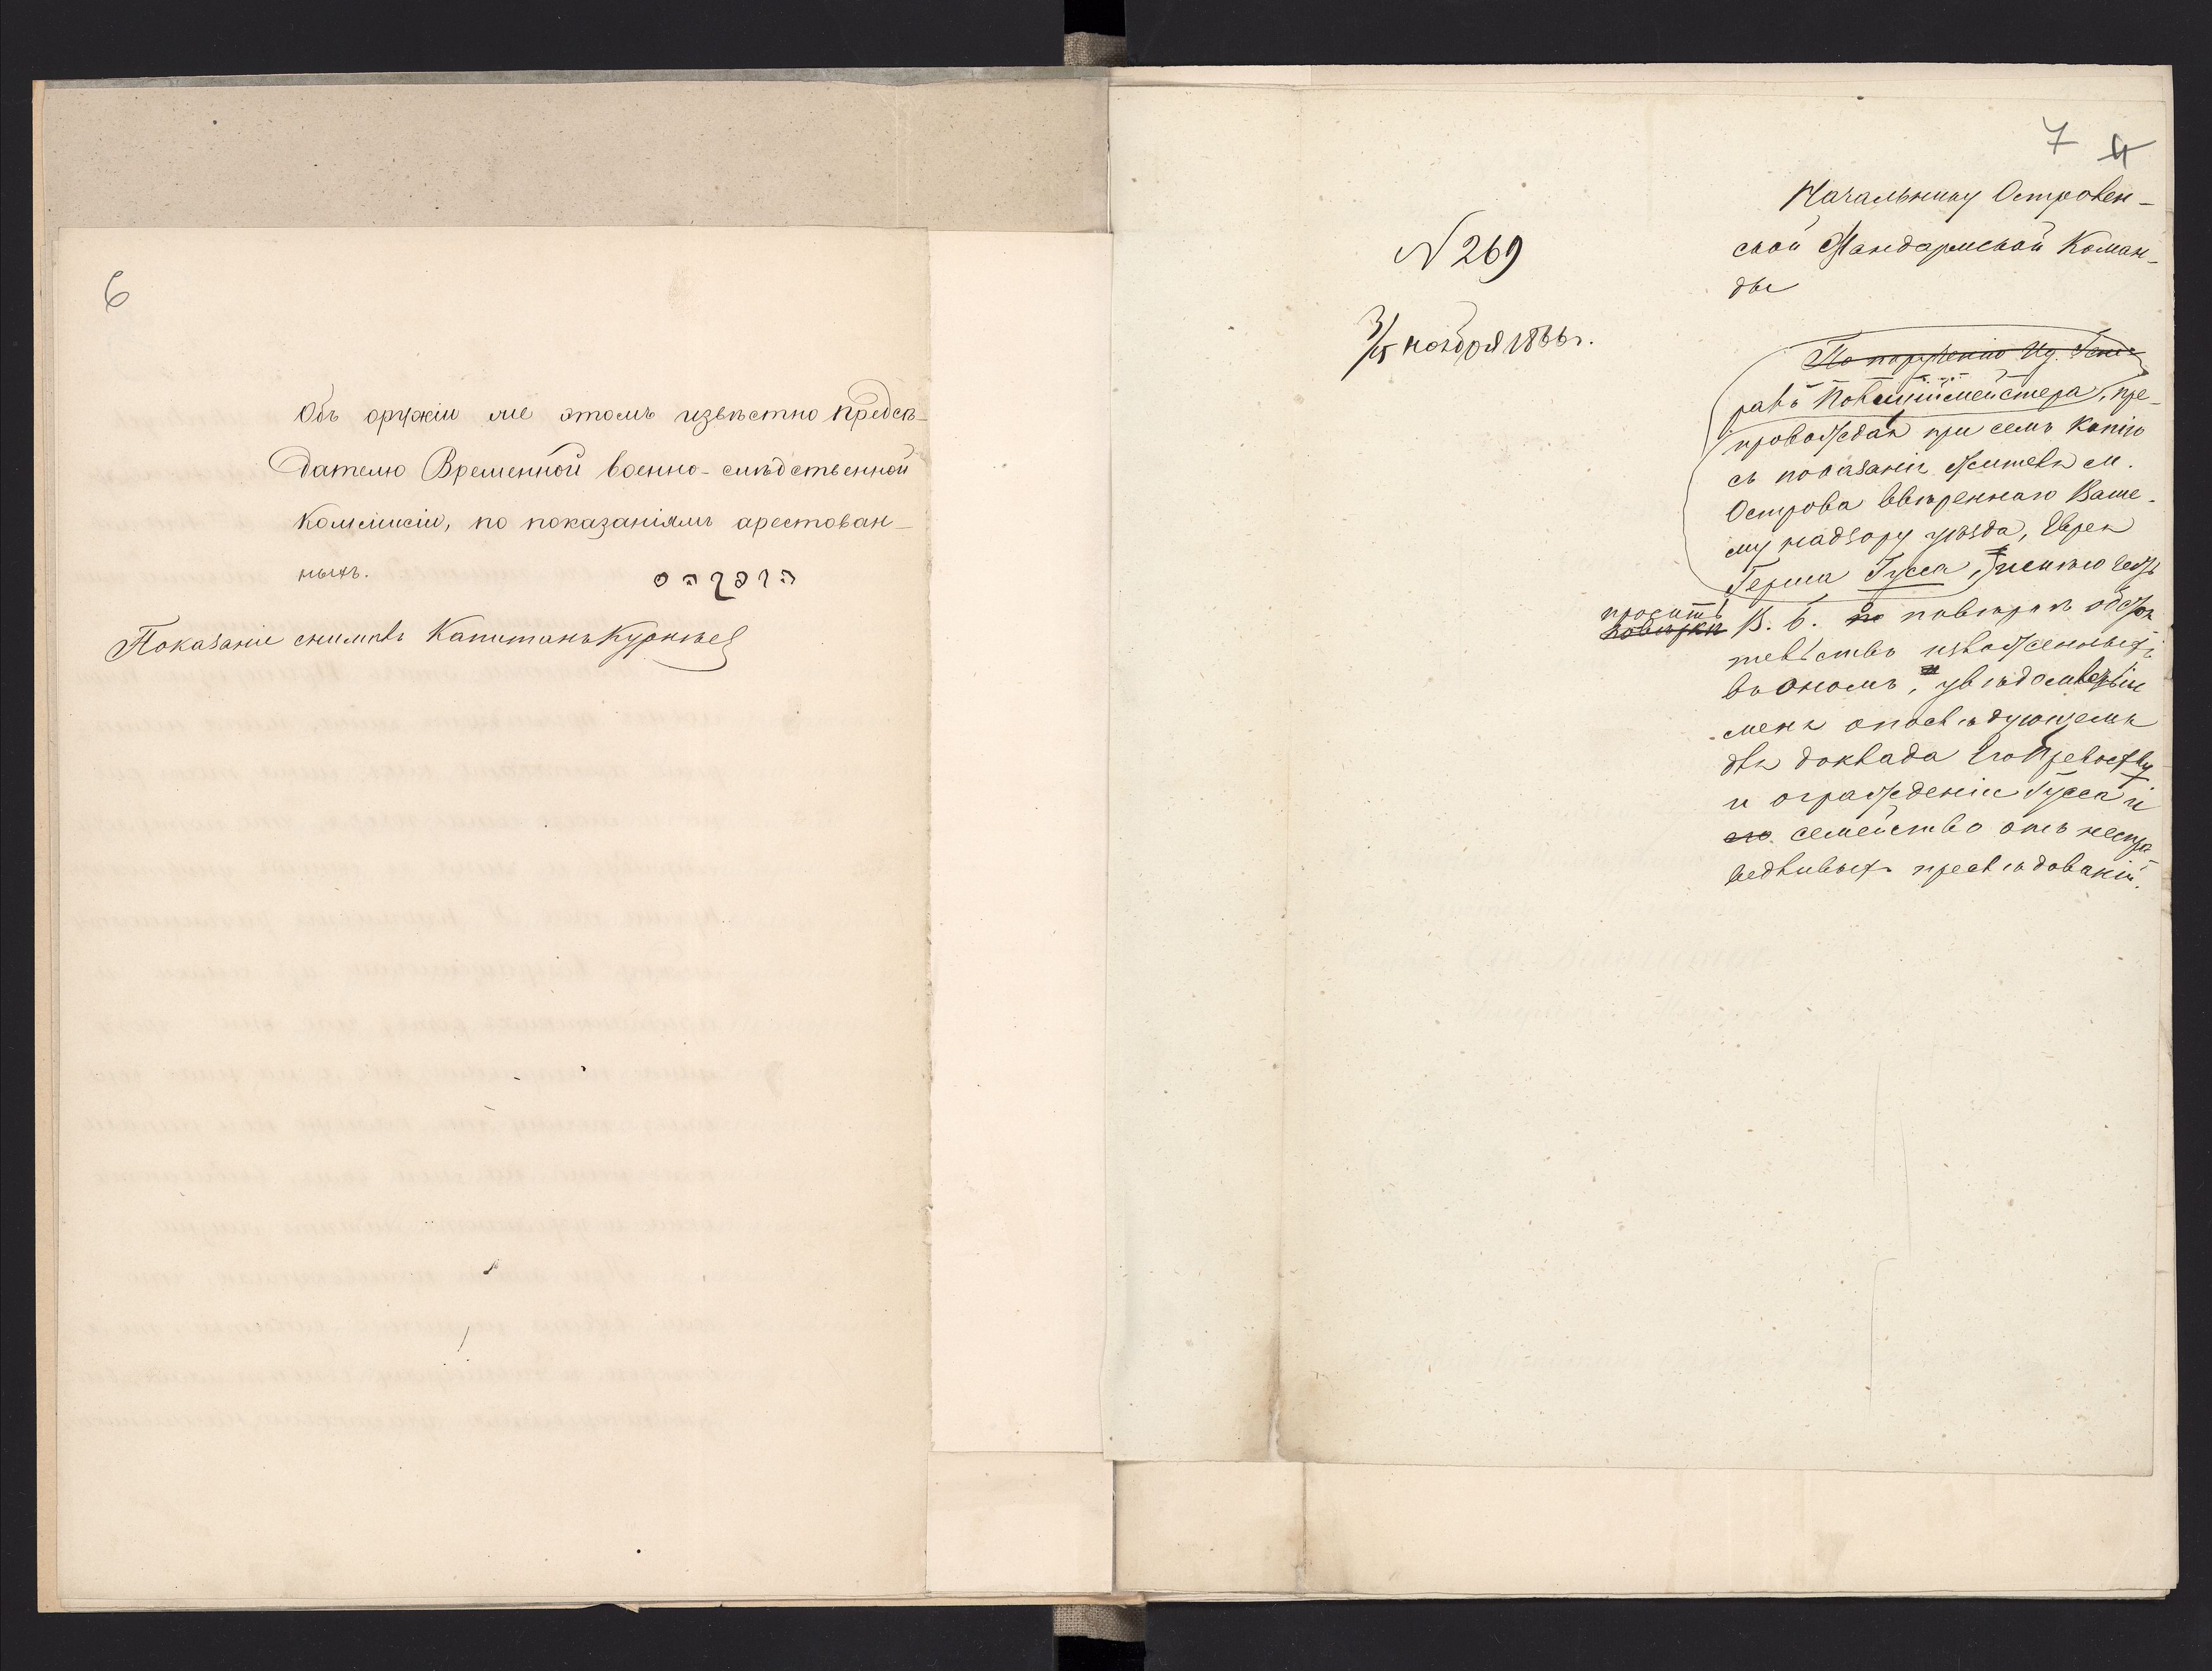 6
Объ оружіи же этомъ извѣстно Предсѣ-
дателю Временной военно-слѣдственной
Коммисіи, по показаніямъ арестован-
ныхъ.
Показаніе снималъ Капитанъ
7 4
Начальнику Островен-
ской Жандармской Коман-
ды
N 269
3/15 ноября 1866 г.
По порученію Ид. Гене-
рала Полицмейстера, пре-
провождая при семъ копію
съ показанія жителя м.
Острова ввѣреннаго Ваше-
му надзору уѣзда, Еврея
Герша Гусса, имѣю честь
просить В. Б. повѣрить обстоя
тельства изложенныхъ
въ ономъ, увѣдомивъ
меня о послѣдующемъ
для доклада Его Превосх-ву
и огражденія Гусса и
его семейство отъ неспра
ведливыхъ преслѣдованій.